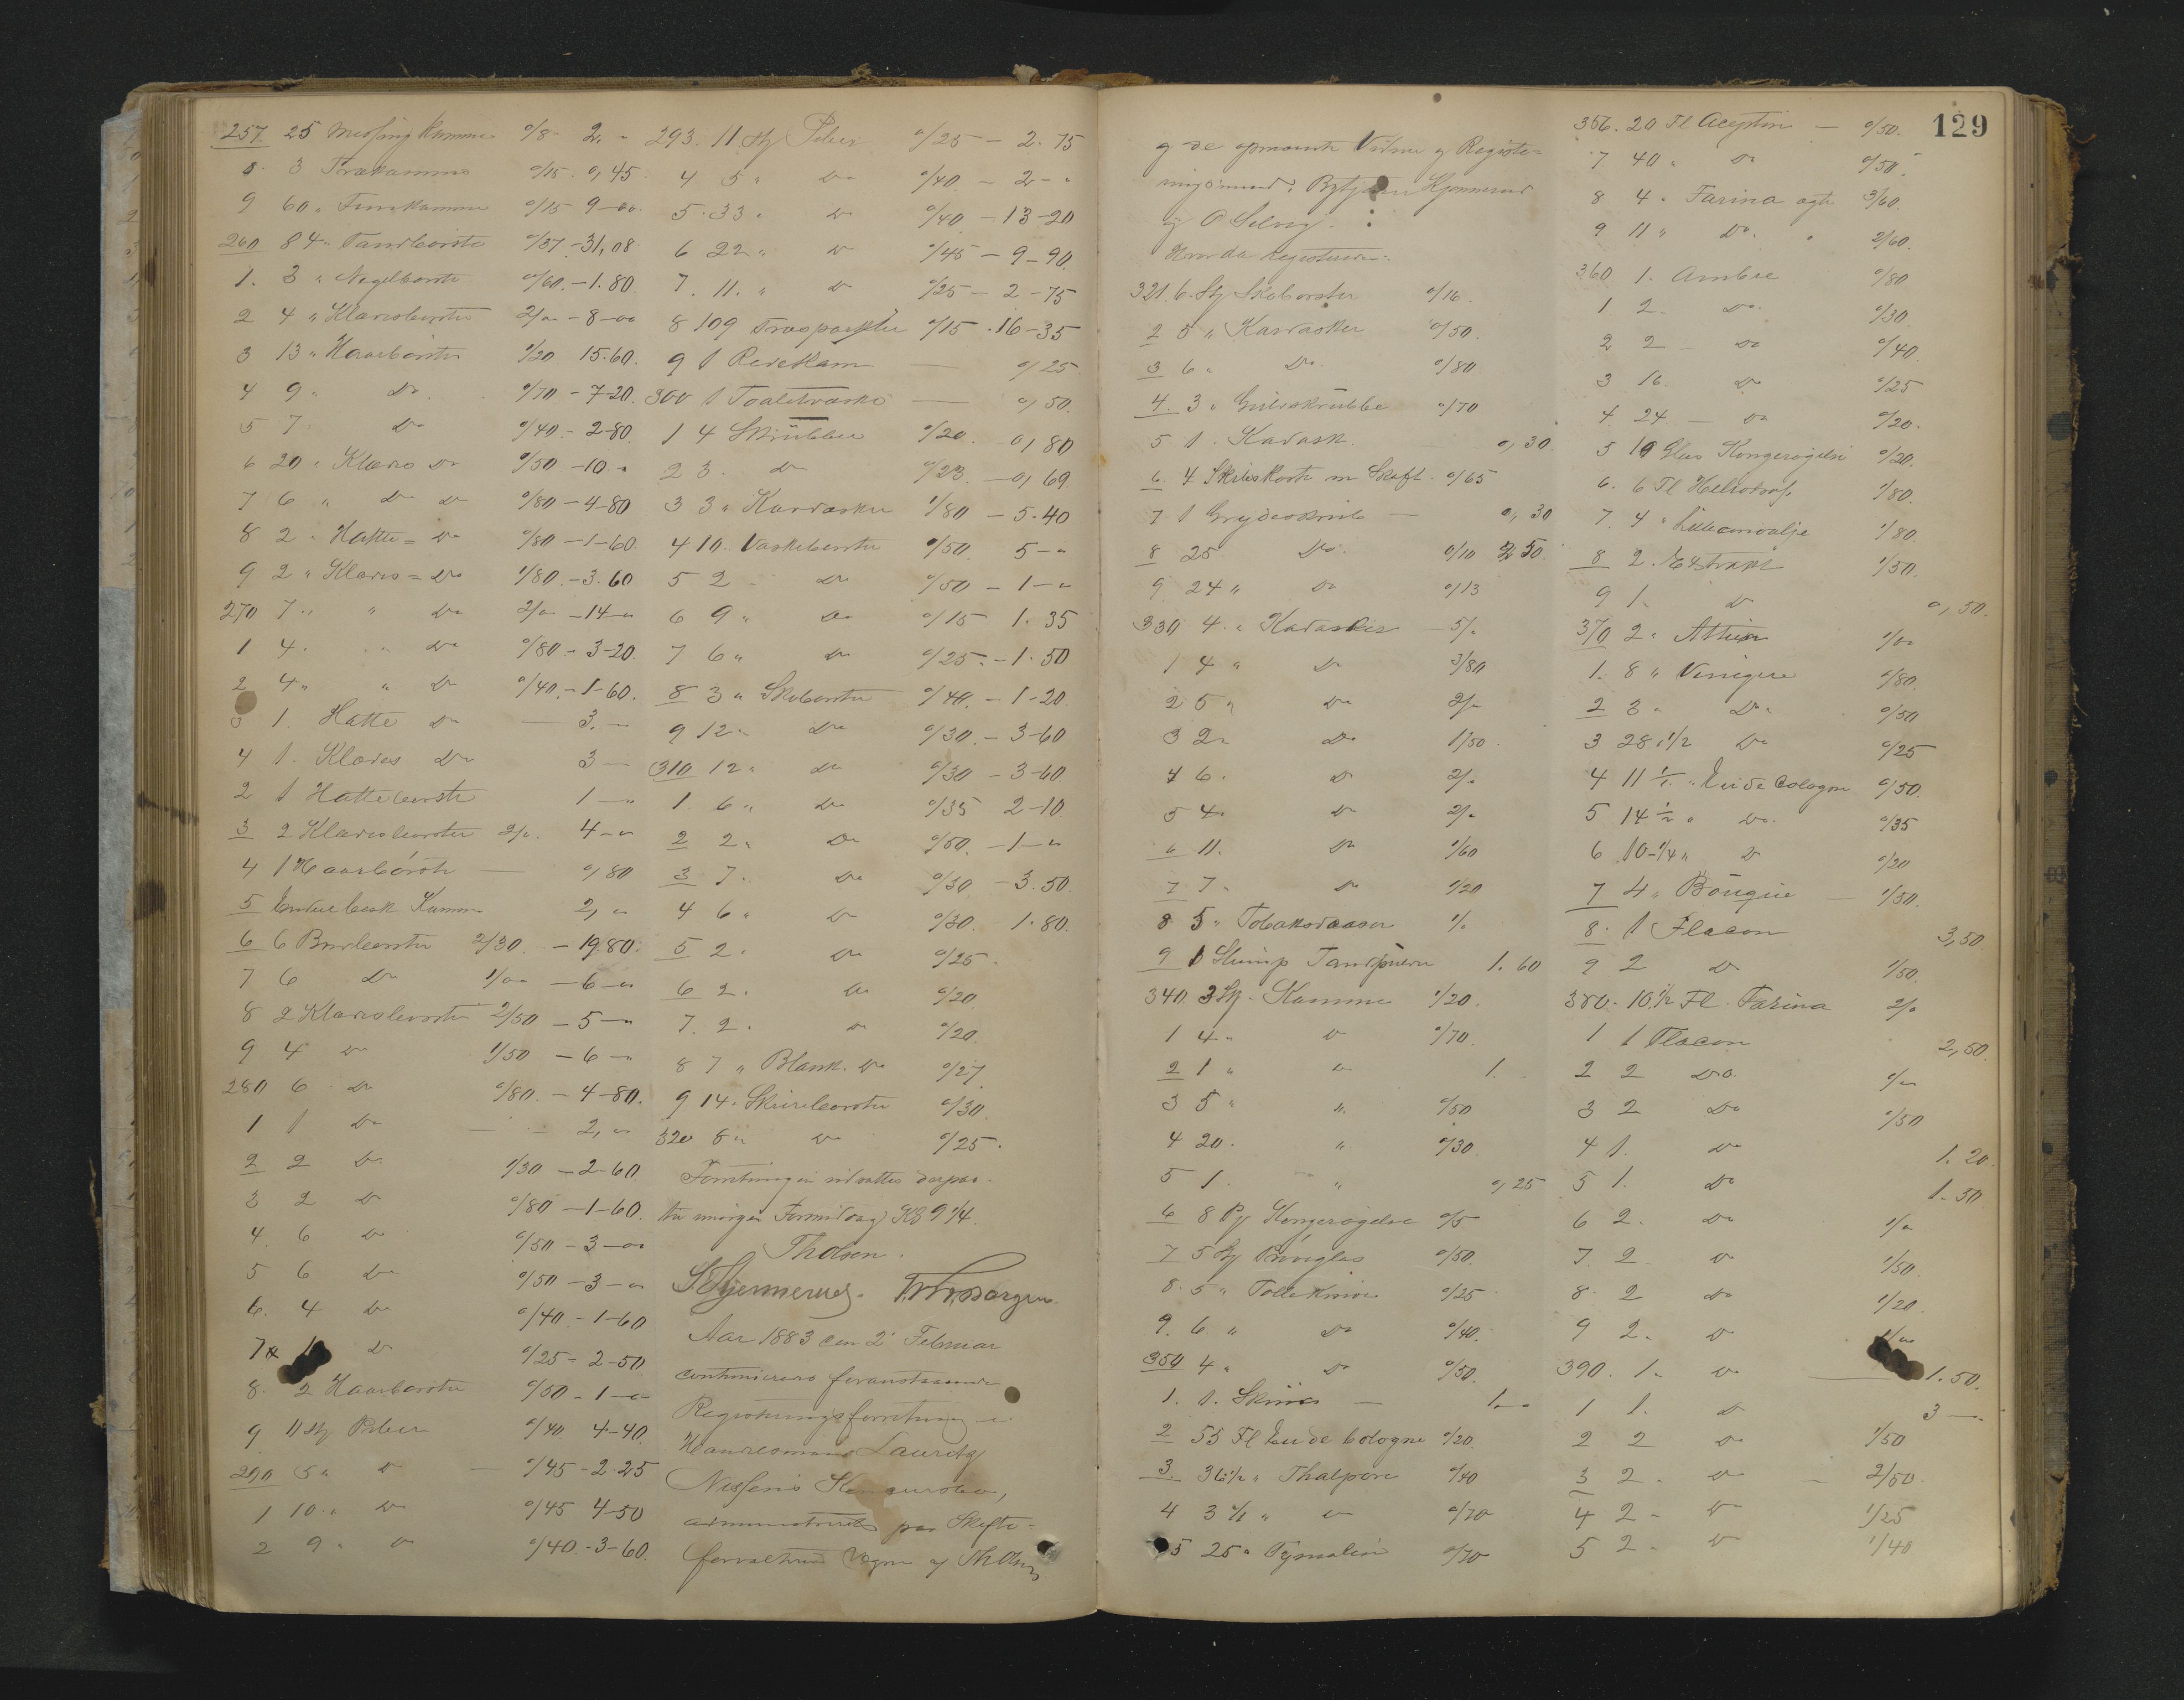 257. 25 Messing Kamme 0/8 2. "
8. 3 Trækamme 0/15. 0,45
9 60 " Finekamme 0/15 9-00
260 84 " Tandbørste 0/37-31,08
1. 3 " Neglbørste 0/60.-1.80
2 4 " Klædesbørste 2/00-8-00
3 13 " Haarbørster 1/20 15.60.
4 9 " Do. 0/70-7-20.
5 7 Do 0/40.-2-80.
6 20 " Klæde Do 0/50-10."
7 6 " Do Do 0/80-4-80
8 2 " Hatte= Do 0/80-1-60.
9 2 " Klædes= Do 1/80.-3.60
270 7 " " Do 2/00-14-"
1 4. " Do 0/80-3-20.
2 4 " " Do 0/40.-1-60.
3 1. Hatte Do 3.-
4 1. Klædes Do 3-
2 1 Hattebørste 1-"
3 2 Klædesbørster 2/". 4-"
4 1 Haarbørste 0,80
5 Kamme 2,"
6 6 2/30.-19.80.
7 6 Do 1/00-6-"
8 2 Klædesbørster 2/50-5-"
9 4 Do 1/50-6-"
280 6 Do 0/80.-4-80.
1 1 Do - - 2,"
2 2 Do 1/30-2-60
3 2 Do 0/80-1-60.
4. 6 Do 0/50-3-00
5 6 Do 0/50-3-"
6. 4 Do 0/40.-1-60
7 Do 0/25-2-50
8. 2 Haarbørster 0/50-1-"
9 11 Stk Piber 0/40 4-40.
290 5 " Do - 0/45-2.25
1 10 " Do 0/45 4-50
2 9 " Do 0/40-3-60.
293. 11 Stk Piber 0/25-2.75
4 5 " Do 0/40.-2-"
5. 33 " Do 0/40-13-20
6 22 " Do 0/45-9-90.
7. 11. " Do 0/25-2-75
8 109 0/15.16-35
9 1 Redekam - 0,25
300 1 Toaletvaske - 0,50.
1 4 Skrubber 0/20. 0,80
2 3. Do 0/23.-0,69
3 3 " Kardasker 1/80-5.40
4 10. Vaskebørster 0/50. 5-"
5 2 Do 0/50-1-"
6 9 " Do 0/15 1.35
7 6 " Do 0/25.-1.50
8 3 " Skobørster 0/40.-1-20.
9 12 " Do 0/30.-3-60
310 12 " Do 0/30-3-60.
1. 6 " Do 0/35 2-10
2 2. Do 0/50.-1-"
3 7. Do 0/50-3.50.
4 6 " Do 0/30. 1.80.
5 2. Do 0/25.
6 2. Do 0/20
7. 2. Do 0/20.
8 7 " Blank. Do 0/27
9 14. Skurebørster 0/30.
320 8 " Do 0/25.
Forretningen udsattes derpaa
til imorgen Formiddag Kl 9 1/4.
Th Olsen.
Aar 1883 den 2' Februar
continueredes foranstaaende
Registreringsforretning i
Handelsmand Lauritz
Nilsens
administreret paa Skifte-
forvalterens Vegne af Th Olsen
129
og de opnævnte Vidner og Registe=
ringsmænd: Kjennerud
og O Selvig.
Hvor da registreredes:
321. 6. Stk Skobørster 0/16.
2 5 " Kardasker 0/50.
3 6 " Do 0/80
4. 3 " Gulvskrubbe 0/70
5 1. Kardask. 0,30
6 4 m Skaft. 0/65
7 1 Grydeskrub - 0,30
8 25 Do. 0/10 2,50.
9 24 " Do 0/13
330 4. " Kardasker 5/"
1 4 " Do 3/80
2 5 " Do 2/"
3 2 " Do 1/50
4 6. Do 2/"
5 4. Do 2/"
6 11. Do 1/60
7 7. Do 1/20
8 5 " Tobaksdaaser 1/"
9 1 Slump Tandpulver 1.60
340. 3 Stk. Kamme 1/20.
1 4 " Do 0/70.
2 1 " Do 1.
3 5 " " 0/50
4 20. " 0/30.
5 1. " 0,25
6 8 Pk Kongerøgelse 0/5
7 5 Stk 0/50.
8. 5 " Tolleknive 0/25
9. 6 " Do 0/40.
350 4 " Do 0/50.
1. 1. - 1.-
2 55 Fl Eau de Cologne 0/20.
3. 36 1/2 " Thalpon 0/40
4 3 1/1 " Do 0/70
5 25 " Tymolin 0/70
356. 20 Fl Aceptin - 0/50.
7 40 " Do 0/50.
8 4 " Farina ægte 3/60.
9 11 " Do. " 2/60.
360 1. Ambre 0/80
1 2. Do. 0/30
2 2 - Do 0/40.
3 16. Do 0/25
4 24. - Do 0/20.
5 10 Glas Kongerøgelse 0/20.
6. 6 Fl Heliotrop 1/80.
7. 4 " Lilleconvalje 1/80.
8 2. Extrakt 1/50.
9 1. Do 0,50.
370 2. 1/00
1. 8 " Vinigre 0/80.
2 3 " Do " 0/50
3 28 1/2 Do 0/25
4 11 1/1 " Eau de Cologne 0/50.
5 14 1/2 " Do. 0/35
6 10 1/4 " Do 0/20
7 4 " Bouquie - 1/30.
8. 1 Flacon 3,50
9 2 Do 1/50.
380. 10 1/2 Fl. Farina 2/"
1 1 Flacon 2,50.
2 2 Do. 1/"
3 2 Do 0/50
4 1. Do 1.20.
5 1. Do 1.50
6 2. Do 1/"
7. 2 Do 1/50.
8. 2 Do 1/20.
9 2. Do 1/00
390. 1. Do 1.50.
1 1. Do 3-.
2 2 Do 1/50
3 2. Do - 2/50.
4 2 - Do 1/25
5 2 - Do 1/40